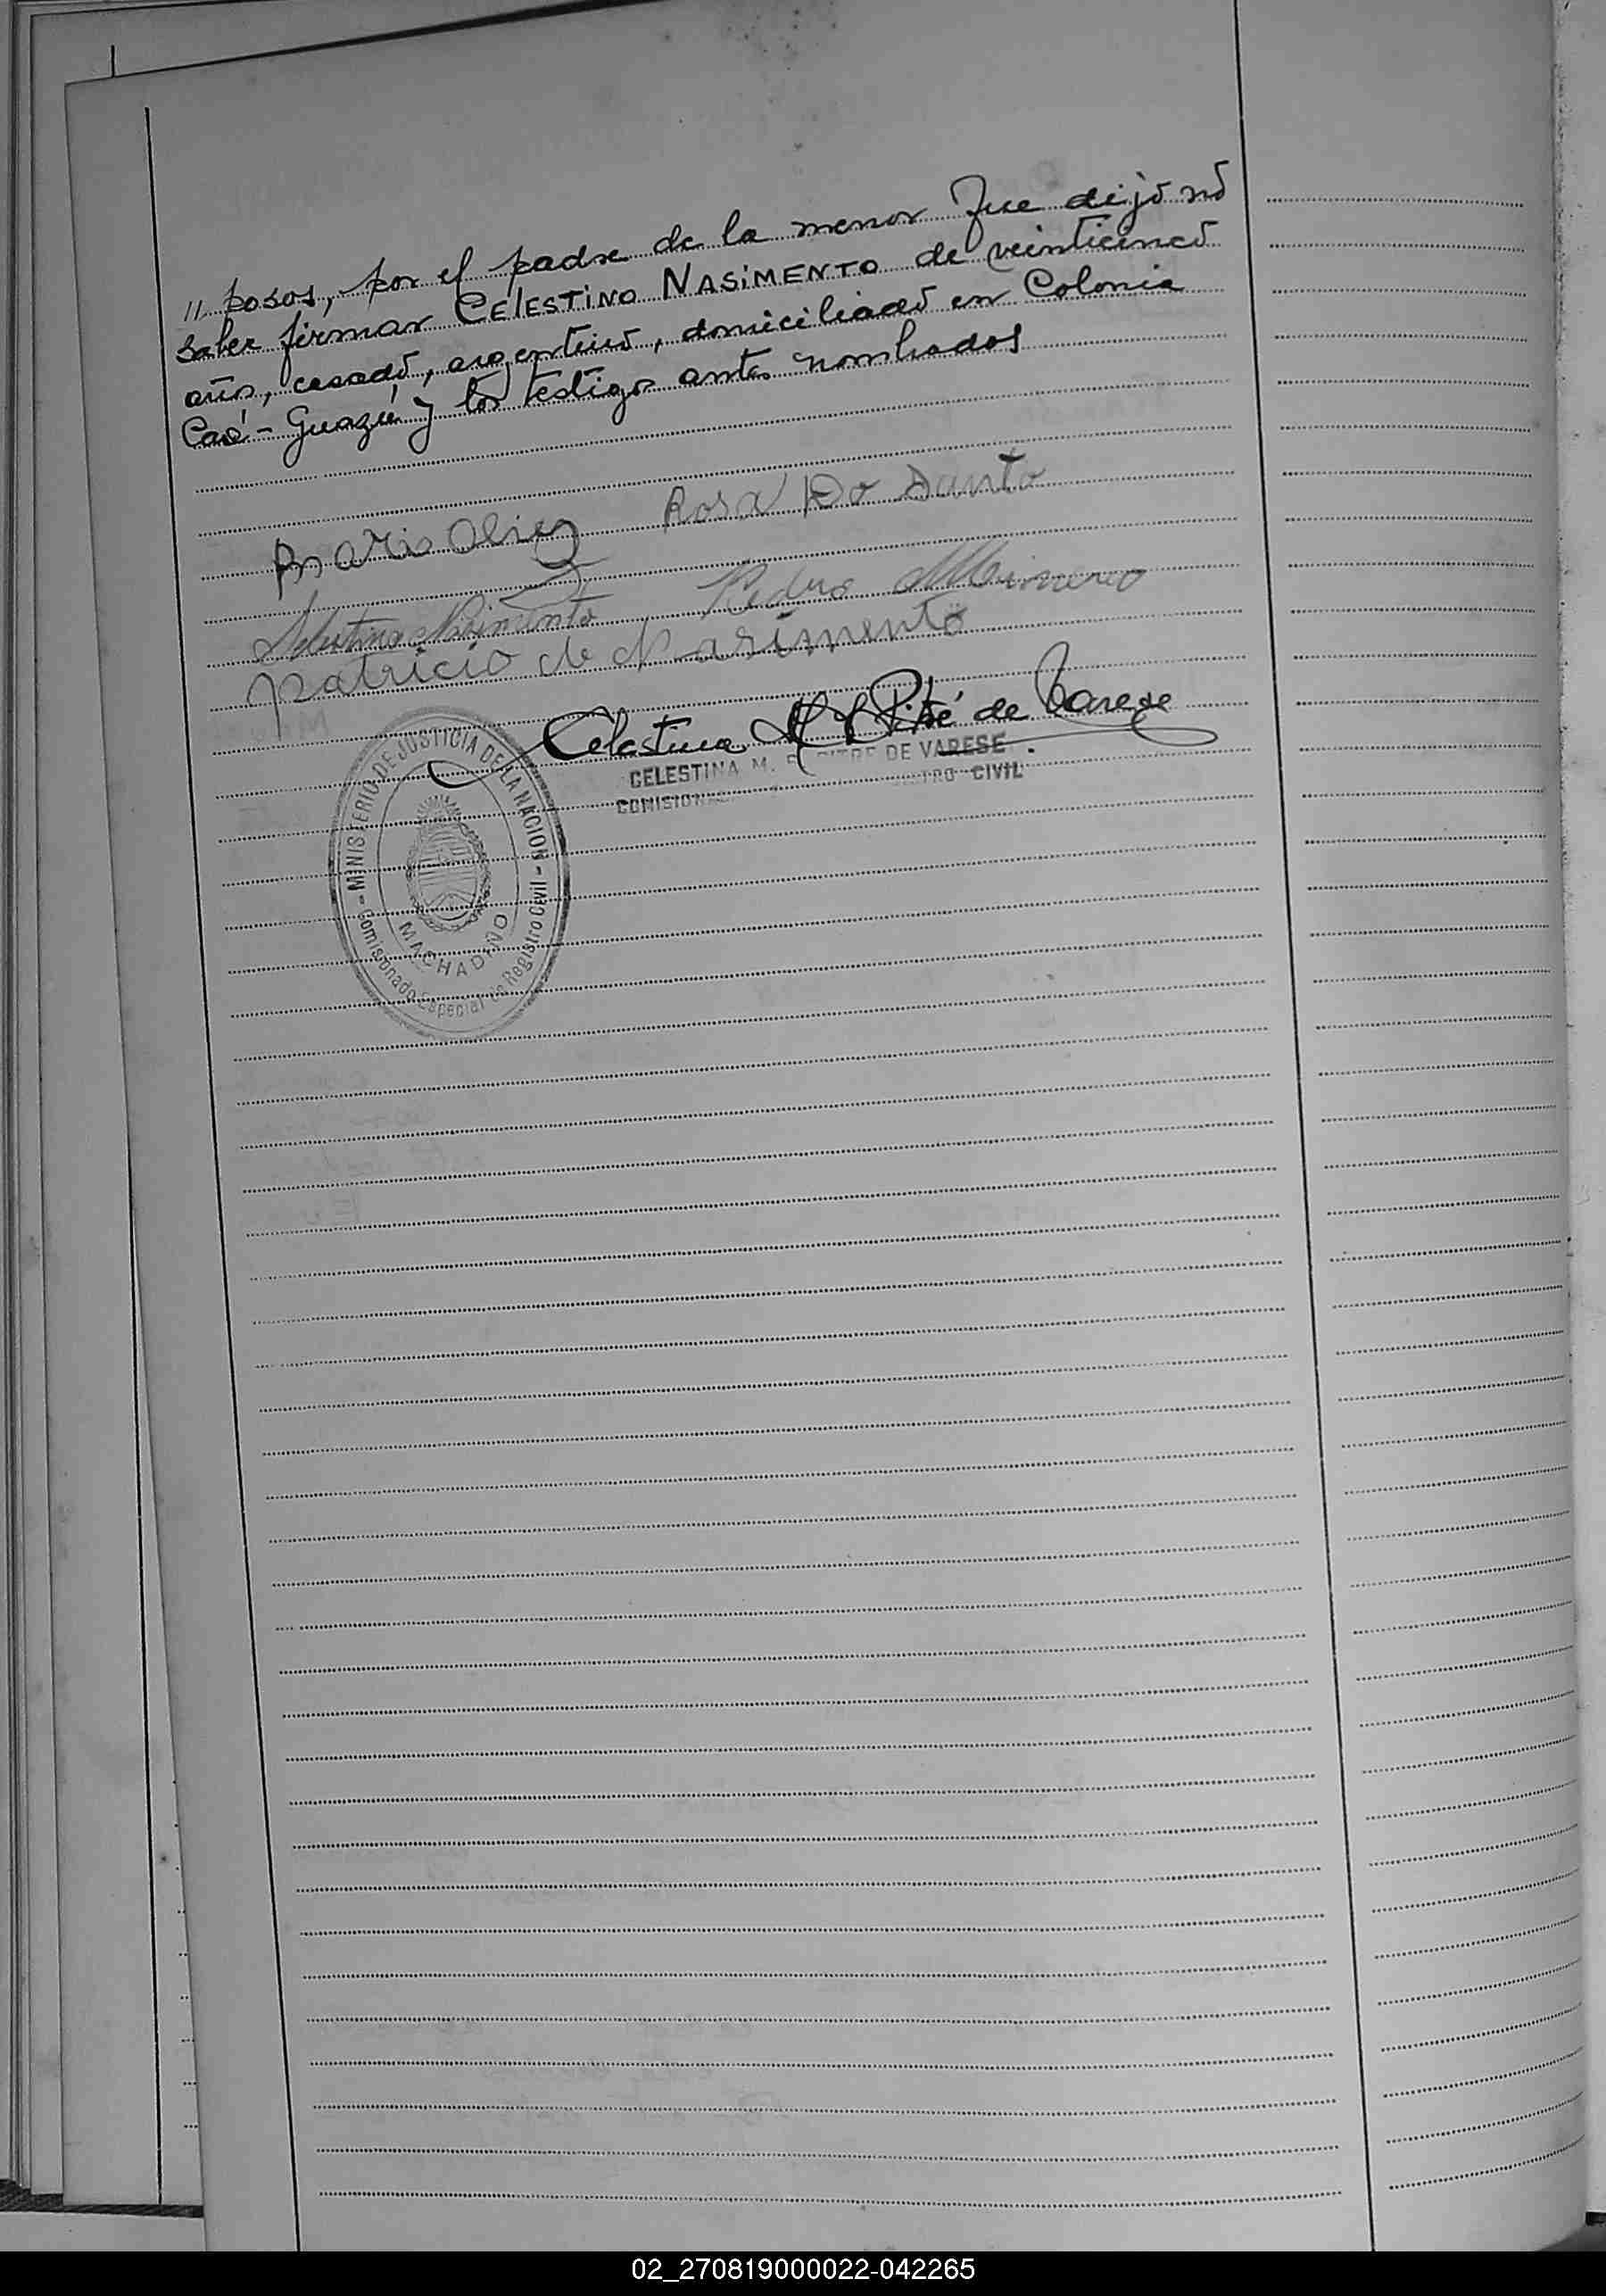 " posos, por el padre de la menor que dijo no
saber firmar CELESTINO NASIMENTO de veinticinco
años, casado, argentino, domiciliado en Colonia
Caá-Guazú y los testigos antes nombrados
Rosa Do Santo
Celestino Nasimento Pedro
Patricio de Nasimento
Celestina M. P. Pitré de Varese
CELESTINA M. DE VARESE
CIVIL
- MINISTERIO DE JUSTICIA DE LA NACION -
MACHADIÑO
Comisionado Especial de Registro Civil
02_270819000022-042265